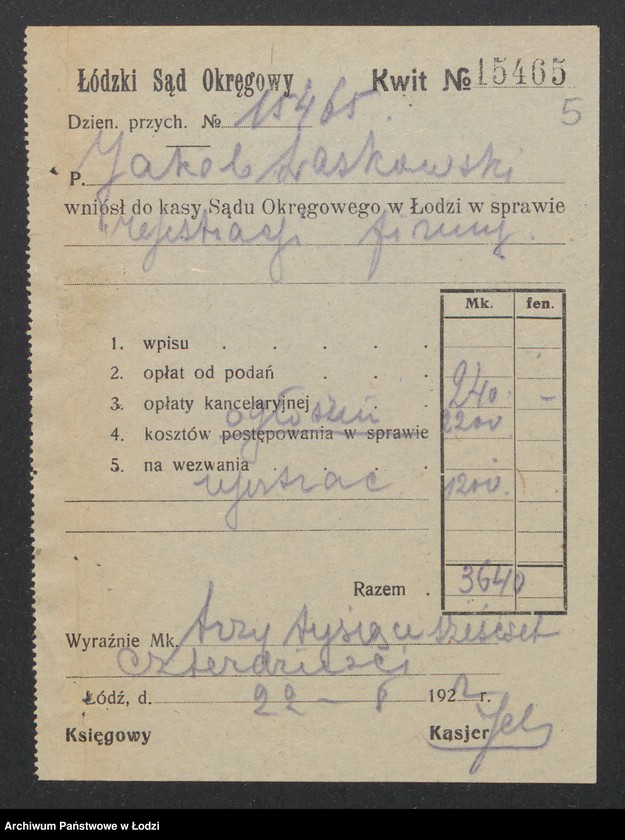 Łódzki Sąd Okręgowy Kwit № 15465
5
Dzien. przych. № 15465.
P. Jakob Laskowski
wniósł do kasy Sądu Okręgowego w Łodzi w sprawie
rejestracji firmy.
Mk. fen.
1. wpisu . . . .
2. opłat od podań . . .
3. opłaty kancelaryjnej . . 240. –
ogłoszeń 2200
4. kosztów postępowania w sprawie
5. na wezwania . . . .
rejestrac 1200.
Razem . 3640
Wyraźnie Mk. trzy tysiące sześćset
czterdzieści
Łódź, d. 22 – 8 1922 r.
Księgowy Kasjer
Archiwum Państwowe w Łodzi